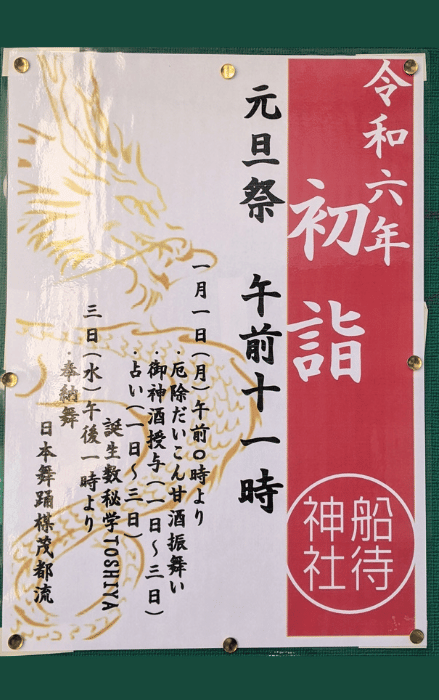 令和六年
初詣
船待
神社
元旦祭　午前十一時
一月一日（月）午前０時より
・厄除だいこん甘酒振舞い
・御神酒授与（一日～三日）
・占い（一日～三日）
誕生数秘学TOSHIYA
三日（水）午後一時より
・奉納舞
日本舞踊楳茂都流